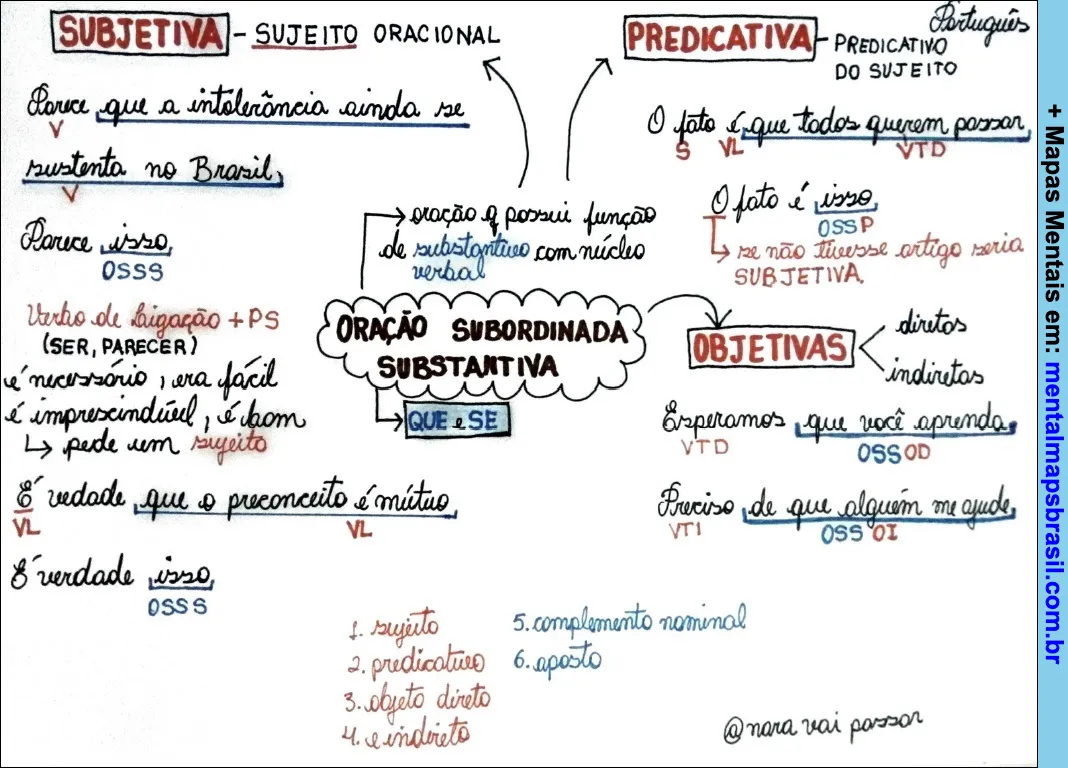 Português
SUBJETIVA - SUJEITO ORACIONAL
Parece que a intolerância ainda se
V
sustenta no Brasil,
V
Parece isso,
OSSS
Verbo de Ligação + PS
(SER, PARECER)
é necessário, era fácil
é imprescindível, é bom
↳ pede um sujeito
É vedade que o preconceito é mútuo
VL VL
É verdade isso,
OSS S
PREDICATIVA - PREDICATIVO
DO SUJEITO
O fato é que todos querem passar
S VL VTD
O fato é isso
OSSP
↳ se não tivesse artigo seria
SUBJETIVA.
→ oração q possui função
de substantivo com núcleo
verbal
ORAÇÃO SUBORDINADA
SUBSTANTIVA
QUE e SE
OBJETIVAS
diretas
indiretas
Esperamos que você aprenda.
VTD OSSOD
Preciso de que alguém me ajude,
VTI OSS OI
1. sujeito
2. predicativo
3. objeto direto
4. e indireto
5. complemento nominal
6. aposto
@nara vai passar
+ Mapas Mentais em: mentalmapsbrasil.com.br